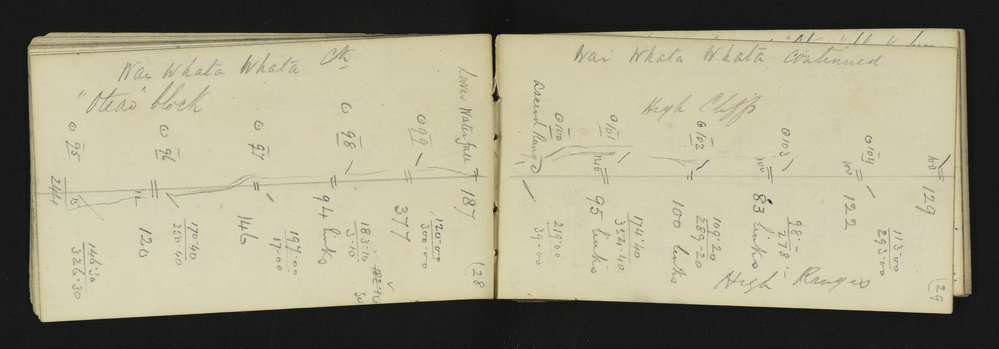 Wai Whata Whata Ck
"Oteao" block
⊙ 95
244
15
146.30
326.30
⊙ 96
=
120
170.40
350.40
⊙ 97
=
146
197.00
17.00
⊙ 98
=
94 links
183.10
3.10
182.10
⊙ 99
=
377
120.00
300.00
Lower Waterfall
=
187
(28
Wai Whata Whata continued
High Cliffs
⊙ 100
219.0
39.00
⊙ 101
=
95 links
174.40
354.40
⊙ 102
=
100 links
109.20
289.20
⊙ 103
100
=
83 links
98.-
278.-
⊙ 104
100
=
122
100
=
129
113.00
293.00
High Ranges
(29